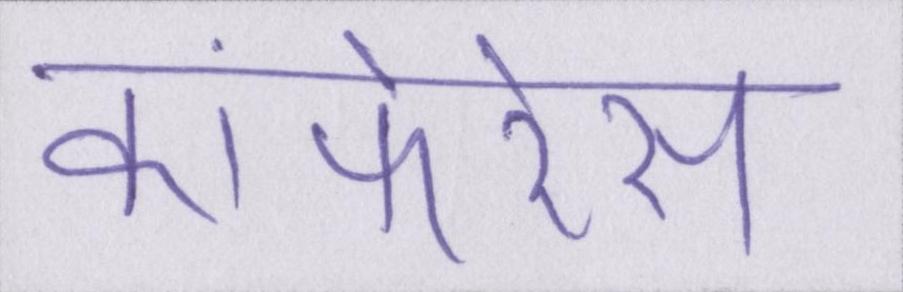 कांफेरेस